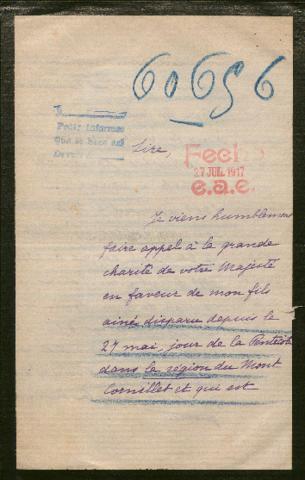 60656
Sire,
Fecho
27 JUL. 1917
e.a.e.
Je viens humblement
faire appel à la grande
charité de votre Majesté
en faveur de mon fils
ainé disparu depuis le
27 mai, jour de la Pentecôte
dans la région du Mont
Cornillet et qui est